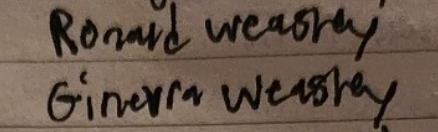 Ronald Weasley
Ginevra Weasley